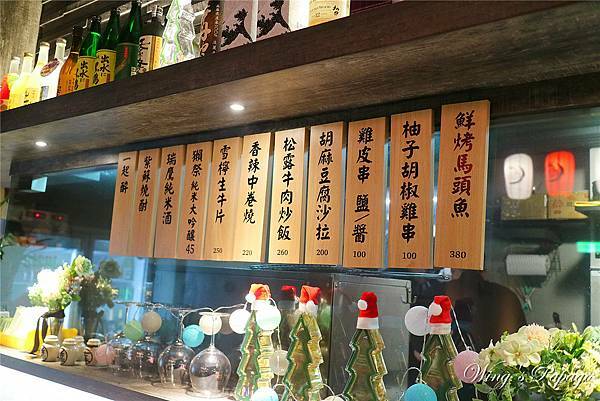 鮮烤馬頭魚
380
柚子胡椒雞串
100
雞皮串 鹽/醬
100
胡麻豆腐沙拉
200
松露牛肉炒飯
260
香辣中卷燒
220
雪檸生牛片
250
獺祭 純米大吟釀
45
瑞鷹純米酒
紫蘇燒酎
一起醉
Wing's Papaya